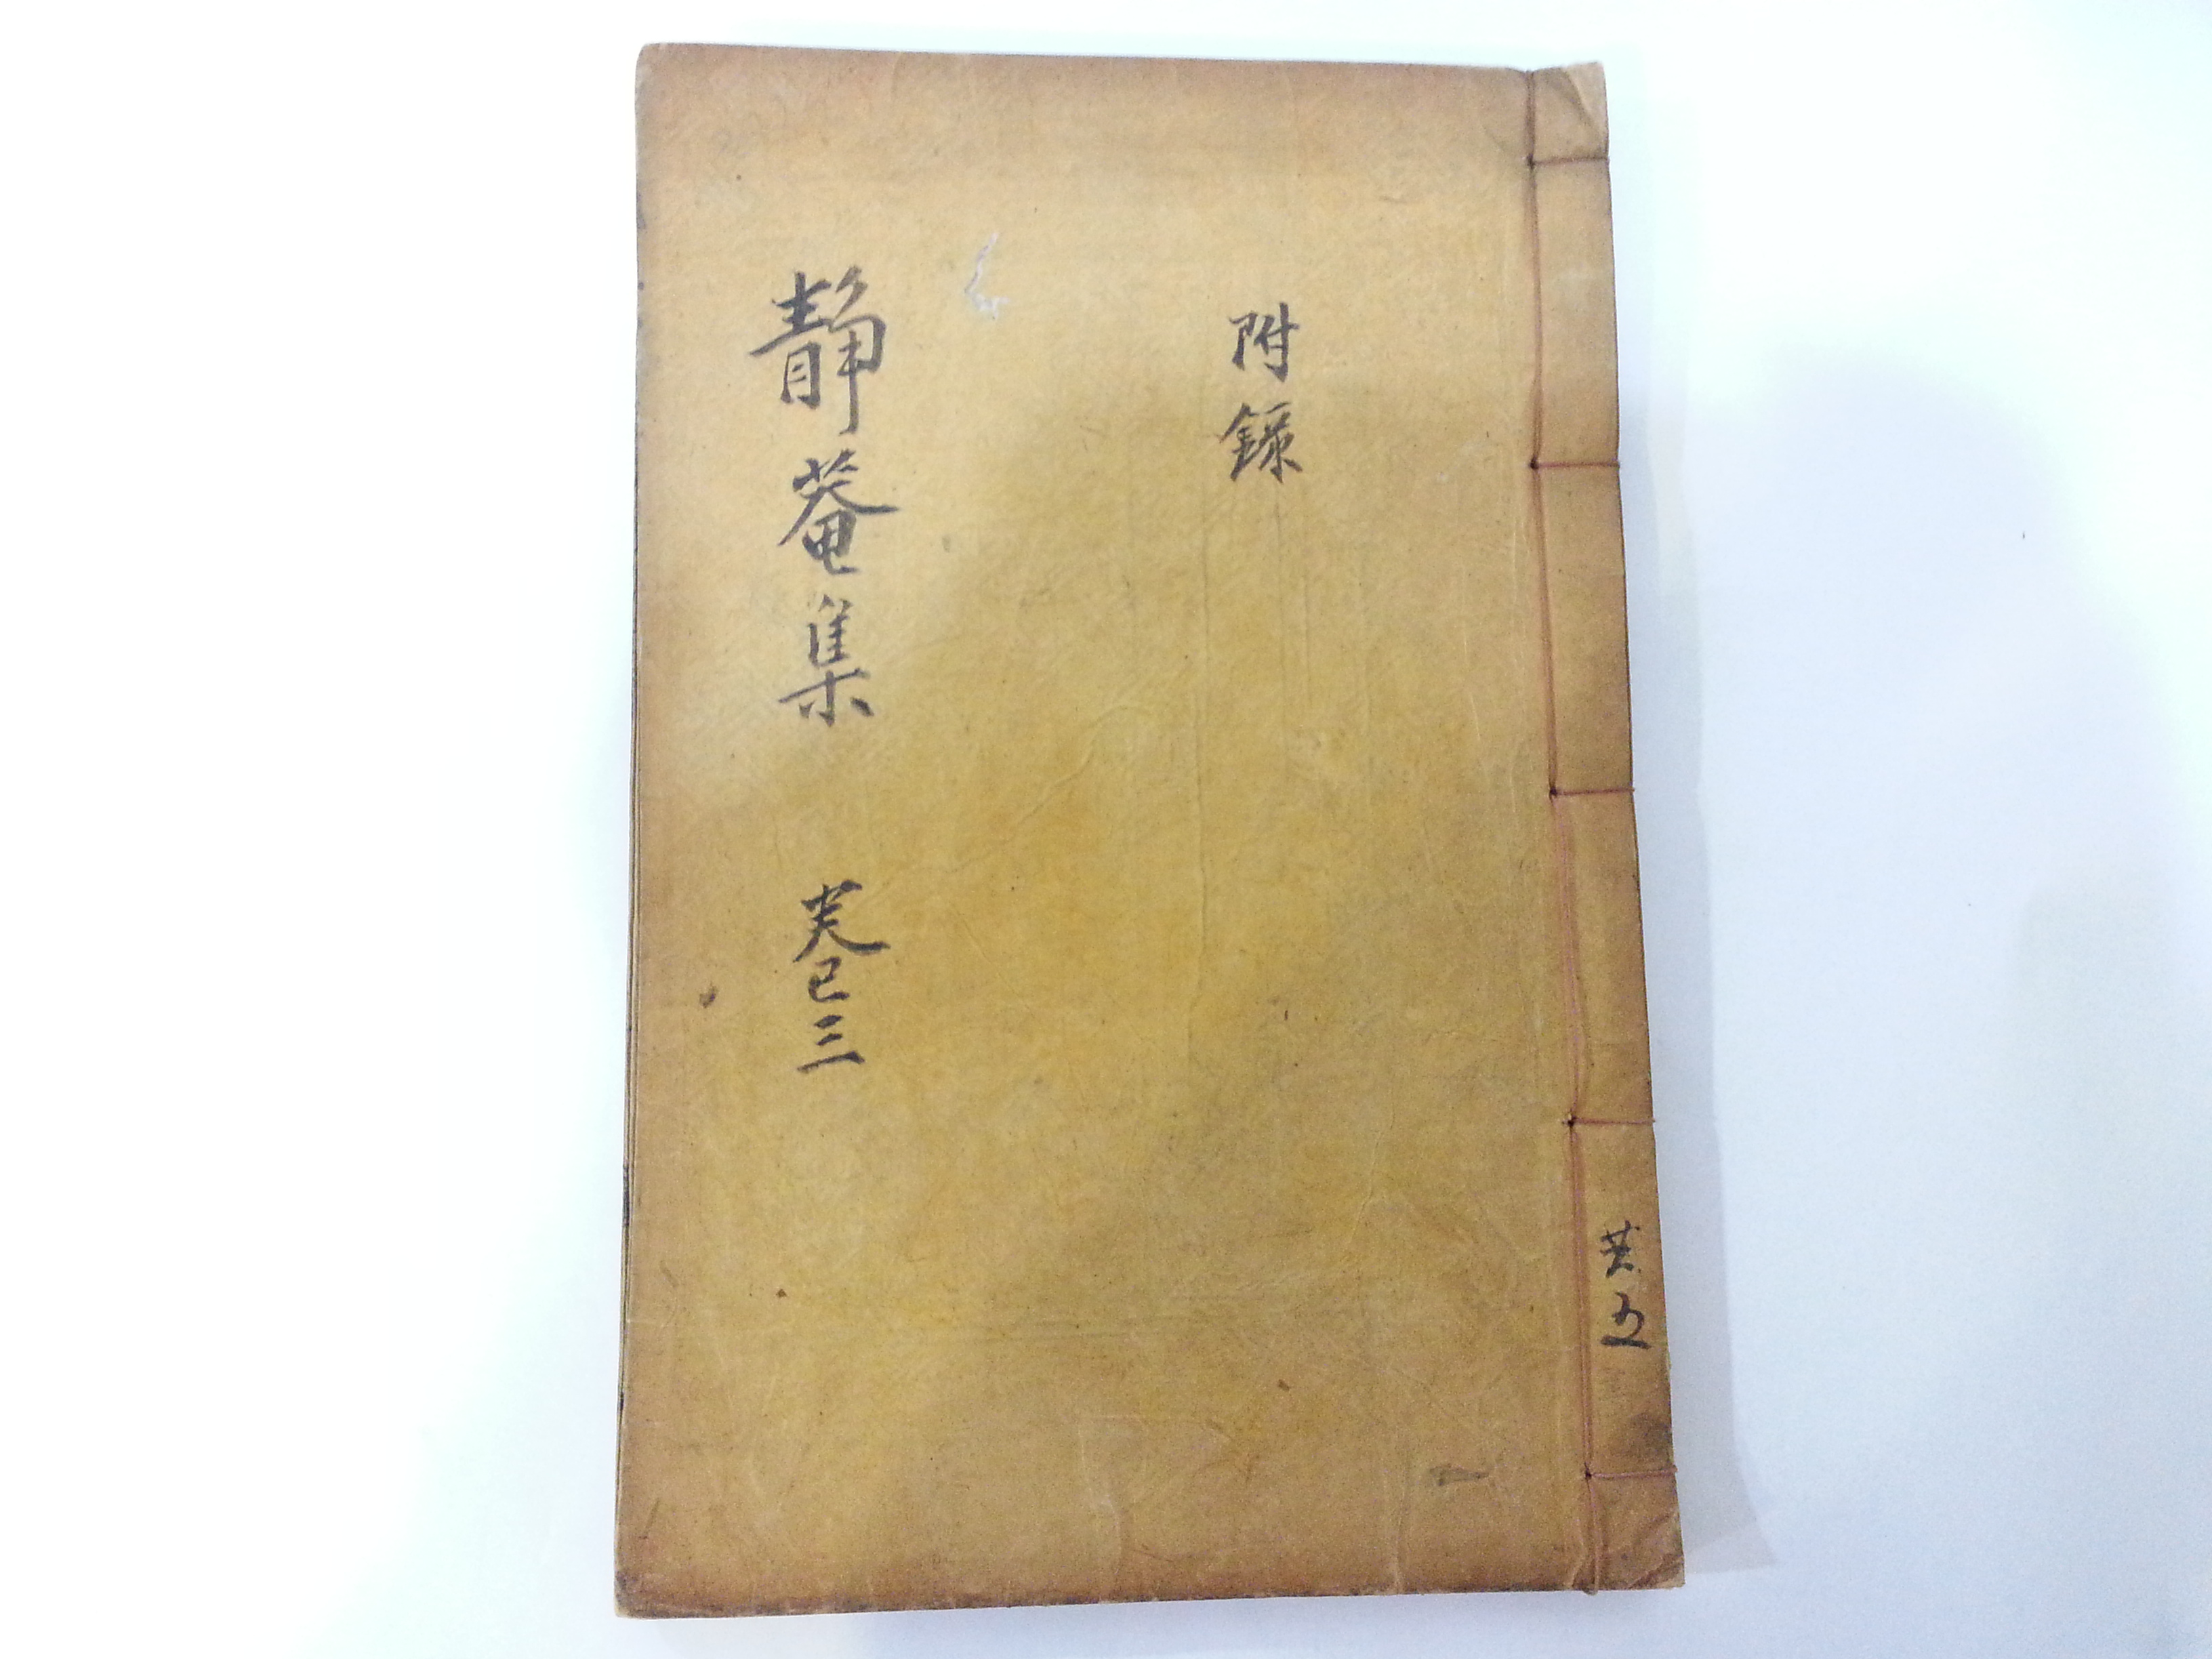 共五
附錄
静菴集 卷三